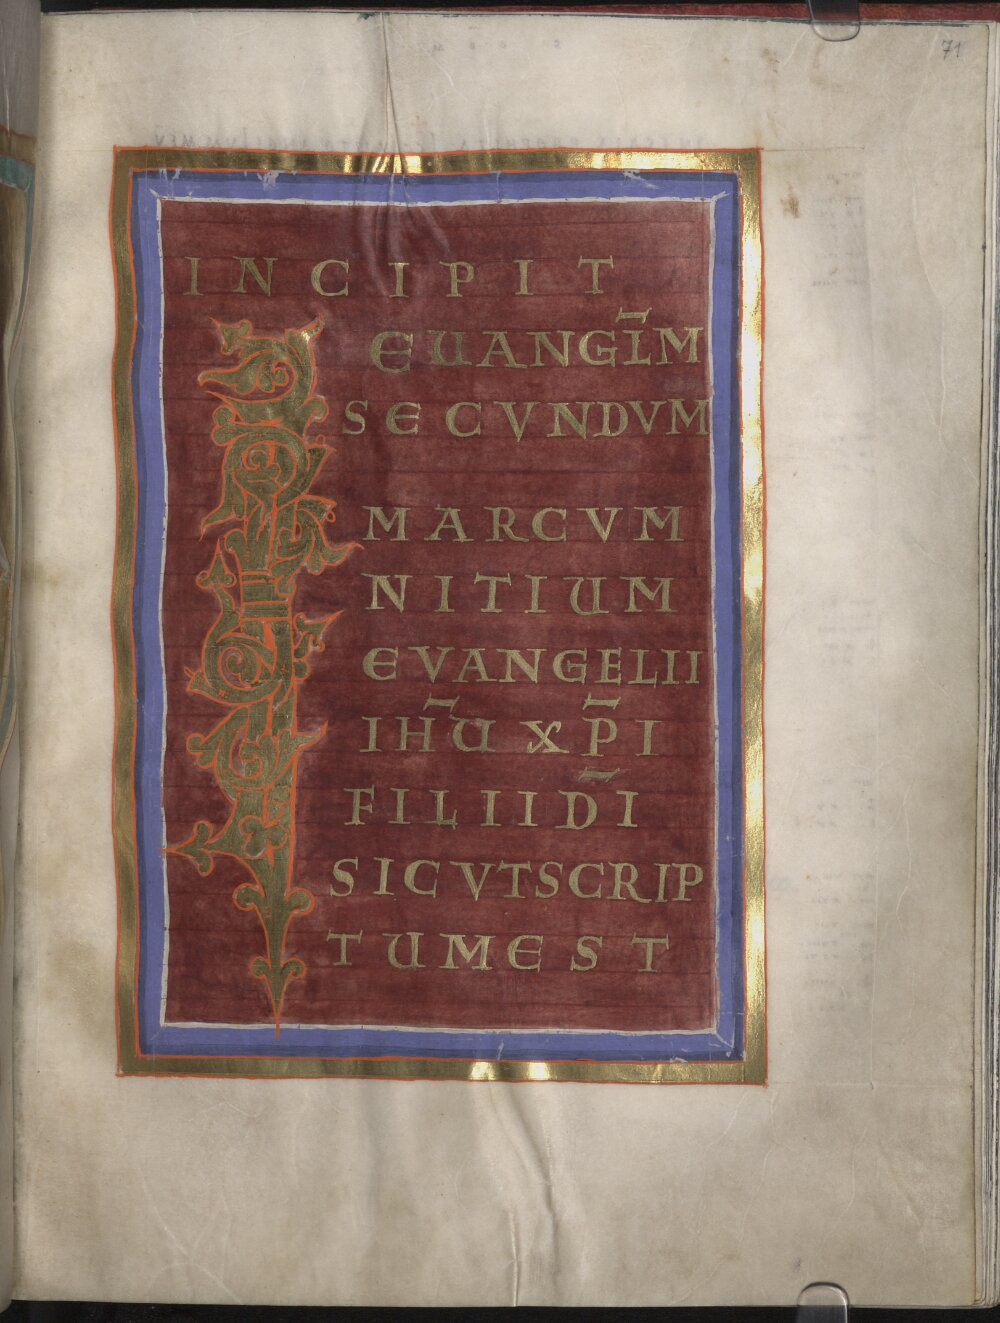 71
INCIPIT
EUANGL̄M
SECVNDVM
MARCVM
INITIUM
EVANGELII
IH̅U XP̅I
FILII DI̅
SICVT SCRIP
TUM EST